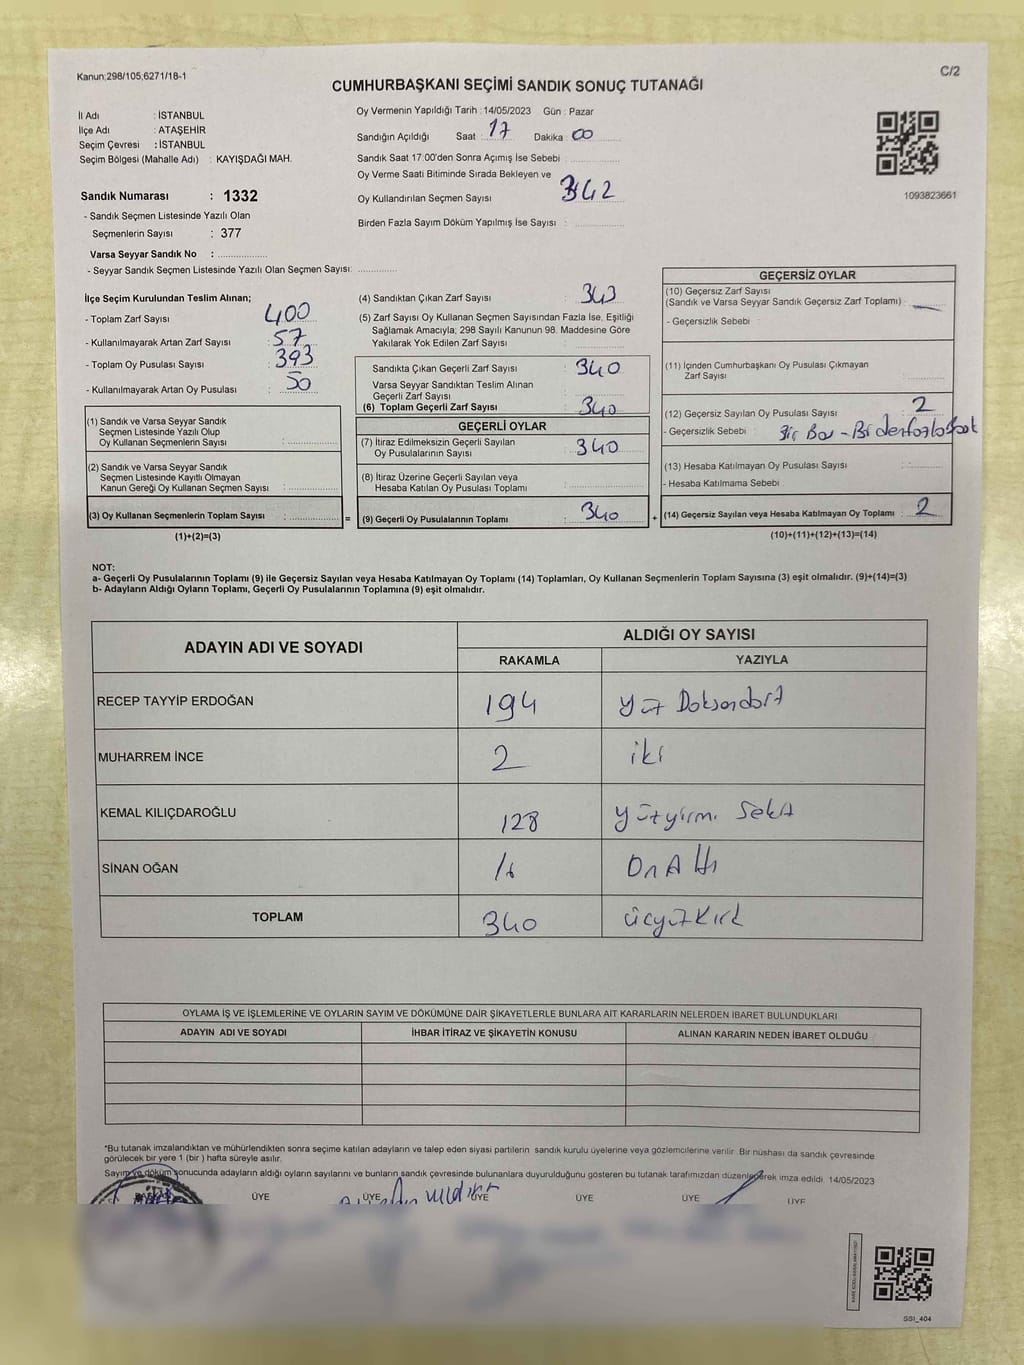 Kanun:298/105,6271/18-1
C/2
CUMHURBAŞKANI SEÇİMİ SANDIK SONUÇ TUTANAĞI
İl Adı : İSTANBUL
İlçe Adı : ATAŞEHİR
Seçim Çevresi : İSTANBUL
Seçim Bölgesi (Mahalle Adı) : KAYIŞDAĞI MAH.
Sandık Numarası : 1332
- Sandık Seçmen Listesinde Yazılı Olan
Seçmenlerin Sayısı : 377
Varsa Seyyar Sandık No :
- Seyyar Sandık Seçmen Listesinde Yazılı Olan Seçmen Sayısı:
Oy Vermenin Yapıldığı Tarih : 14/05/2023 Gün : Pazar
Sandığın Açıldığı Saat : 17 Dakika : 00
Sandık Saat 17:00'den Sonra Açımış İse Sebebi
Oy Verme Saati Bitiminde Sırada Bekleyen ve
Oy Kullandırılan Seçmen Sayısı : 342
Birden Fazla Sayım Döküm Yapılmış İse Sayısı :
1093823661
İlçe Seçim Kurulundan Teslim Alınan;
- Toplam Zarf Sayısı : 400
- Kullanılmayarak Artan Zarf Sayısı : 57
- Toplam Oy Pusulası Sayısı : 393
- Kullanılmayarak Artan Oy Pusulası : 50
(1) Sandık ve Varsa Seyyar Sandık
Seçmen Listesinde Yazılı Olup
Oy Kullanan Seçmenlerin Sayısı :
(2) Sandık ve Varsa Seyyar Sandık
Seçmen Listesinde Kayıtlı Olmayan
Kanun Gereği Oy Kullanan Seçmen Sayısı :
(3) Oy Kullanan Seçmenlerin Toplam Sayısı :
(1)+(2)=(3)
=
(4) Sandıktan Çıkan Zarf Sayısı : 343
(5) Zarf Sayısı Oy Kullanan Seçmen Sayısından Fazla İse, Eşitliği
Sağlamak Amacıyla; 298 Sayılı Kanunun 98. Maddesine Göre
Yakılarak Yok Edilen Zarf Sayısı :
Sandıkta Çıkan Geçerli Zarf Sayısı : 340
Varsa Seyyar Sandıktan Teslim Alınan
Geçerli Zarf Sayısı
(6) Toplam Geçerli Zarf Sayısı : 340
GEÇERLİ OYLAR
(7) İtiraz Edilmeksizin Geçerli Sayılan
Oy Pusulalarının Sayısı : 340
(8) İtiraz Üzerine Geçerli Sayılan veya
Hesaba Katılan Oy Pusulası Toplamı :
(9) Geçerli Oy Pusulalarının Toplamı : 340
+
GEÇERSİZ OYLAR
(10) Geçersiz Zarf Sayısı
(Sandık ve Varsa Seyyar Sandık Geçersiz Zarf Toplamı) : —
- Geçersizlik Sebebi
(11) İçinden Cumhurbaşkanı Oy Pusulası Çıkmayan
Zarf Sayısı
(12) Geçersiz Sayılan Oy Pusulası Sayısı : 2
- Geçersizlik Sebebi : Bir Boş -
(13) Hesaba Katılmayan Oy Pusulası Sayısı :
- Hesaba Katılmama Sebebi
(14) Geçersiz Sayılan veya Hesaba Katılmayan Oy Toplamı : 2
(10)+(11)+(12)+(13)=(14)
NOT:
a- Geçerli Oy Pusulalarının Toplamı (9) ile Geçersiz Sayılan veya Hesaba Katılmayan Oy Toplamı (14) Toplamları, Oy Kullanan Seçmenlerin Toplam Sayısına (3) eşit olmalıdır. (9)+(14)=(3)
b- Adayların Aldığı Oyların Toplamı, Geçerli Oy Pusulalarının Toplamına (9) eşit olmalıdır.
ADAYIN ADI VE SOYADI ALDIĞI OY SAYISI
RAKAMLA YAZIYLA
RECEP TAYYİP ERDOĞAN 194 yüz Doksandört
MUHARREM İNCE 2 iki
KEMAL KILIÇDAROĞLU 128 yüzyirmi Sekiz
SİNAN OĞAN 16 On Altı
TOPLAM 340 üçyüzkırk
OYLAMA İŞ VE İŞLEMLERİNE VE OYLARIN SAYIM VE DÖKÜMÜNE DAİR ŞİKAYETLERLE BUNLARA AİT KARARLARIN NELERDEN İBARET BULUNDUKLARI
ADAYIN ADI VE SOYADI İHBAR İTİRAZ VE ŞİKAYETİN KONUSU ALINAN KARARIN NEDEN İBARET OLDUĞU
*Bu tutanak imzalandıktan ve mühürlendikten sonra seçime katılan adayların ve talep eden siyasi partilerin sandık kurulu üyelerine veya gözlemcilerine verilir. Bir nüshası da sandık çevresinde
görülecek bir yere 1 (bir) hafta süreyle asılır.
Sayım ve döküm sonucunda adayların aldığı oyların sayılarını ve bunların sandık çevresinde bulunanlara duyurulduğunu gösteren bu tutanak tarafımızdan düzenlenerek imza edildi. 14/05/2023
BAŞKAN ÜYE ÜYE ÜYE ÜYE ÜYE ÜYE
SSI_404